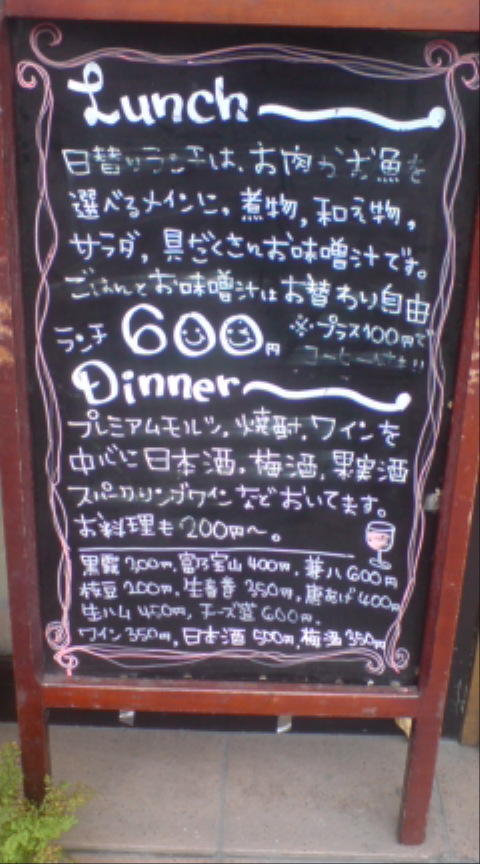 Lunch
日替りランチは、お肉かお魚を
選べるメインに。煮物,和え物。
サラダ,具だくさんお味噌汁です。
ごはんとお味噌汁はお替わり自由
ランチ 600円 ※プラス100円で
コーヒー
Dinner
プレミアムモルツ,焼酎,ワインを
中心に日本酒,梅酒,果実酒
スパークリングワインなどおいてます。
お料理も200円〜。
黒霧 300円,富乃宝山 400円,兼八 600円
枝豆 200円,生春巻 350円,唐あげ 400円
生ハム 450円,チーズ盛 600円,
ワイン 350円,日本酒 500円,梅酒 350円